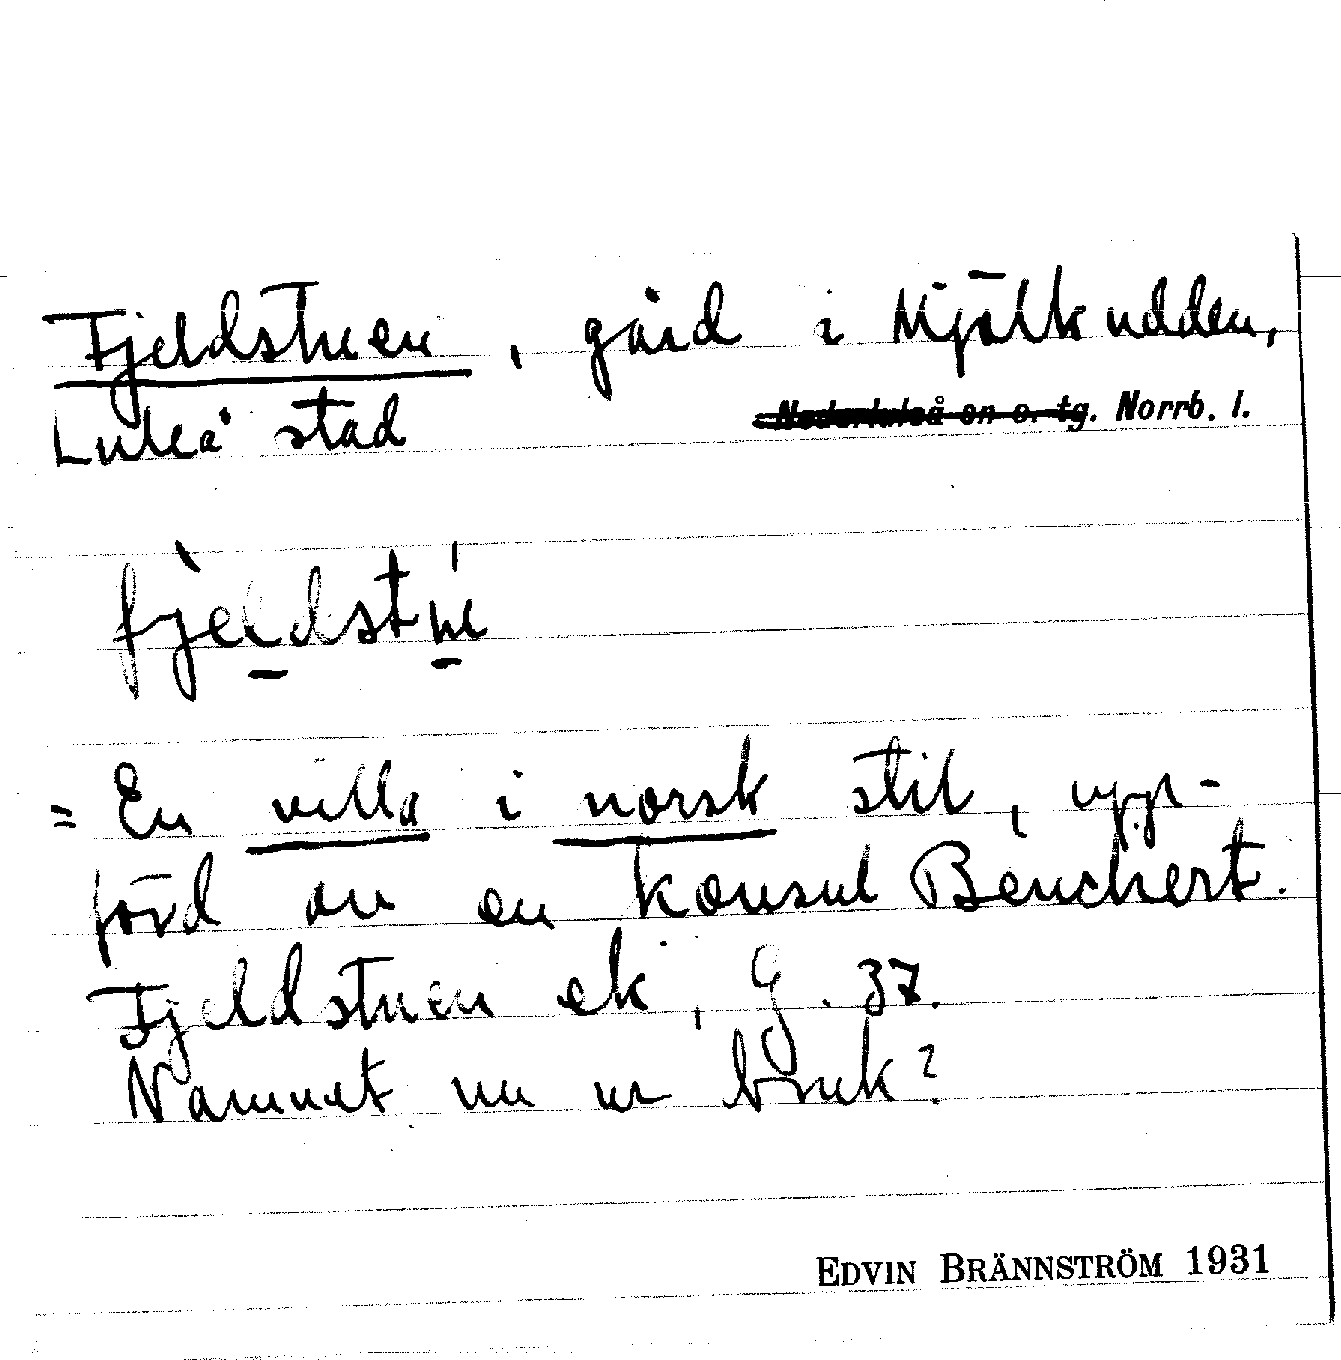 Fjeldstuen, gård i Mjölkudden,
Luleå stad Nederluleå sn o. tg. Norrb. l.
= En villa i norsk stil, upp-
förd av en konsul Beuchert.
Fjeldstuen ek, G. 37.
Namnet nu ur bruk?
EDVIN BRÄNNSTRÖM 1931